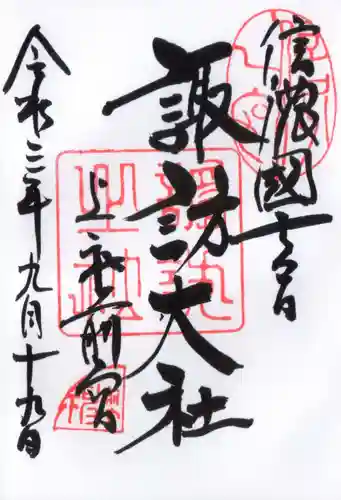 信濃國一之宮
諏訪大社
上社前宮
令和三年九月十九日